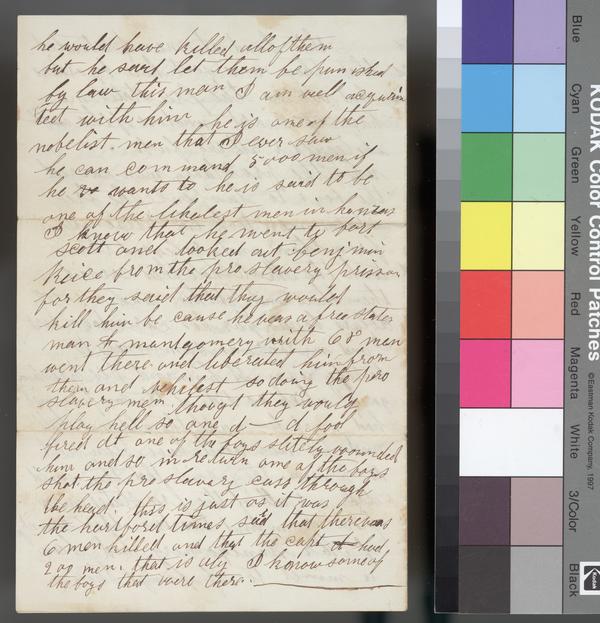 he would have killed all of them
but he said let them be punished
by law this man I am well acquain
ted with him he is one of the
nobelist men that I ever saw
he can command 5000 men if
he wants to he is said to be
one of the likelest men in kansas
I know that he went to fort
scott and looked out benjmin
Reice from the pro slavery prisson
for they said that they would
kill him be cause he was a free states
man & mantgomery with 68 men
went there and liberated him from
them and whilest so doing the pro
slavery men thougt they would
play hell so one d— d fool
fired at one of the boys slitely wounded
him and so in return one of the boys
shot the pro slavery cuss through
the head. this is just as it was
the hartford times said that there was
6 men killed and that the capt had
200 men. that is I know some of
the boys that were there.
KODAK Color Control Patches
©Eastman Kodak Company, 1997
Blue
Cyan
Green
Yellow
Red
Magenta
White
3/Color
Black
Kodak